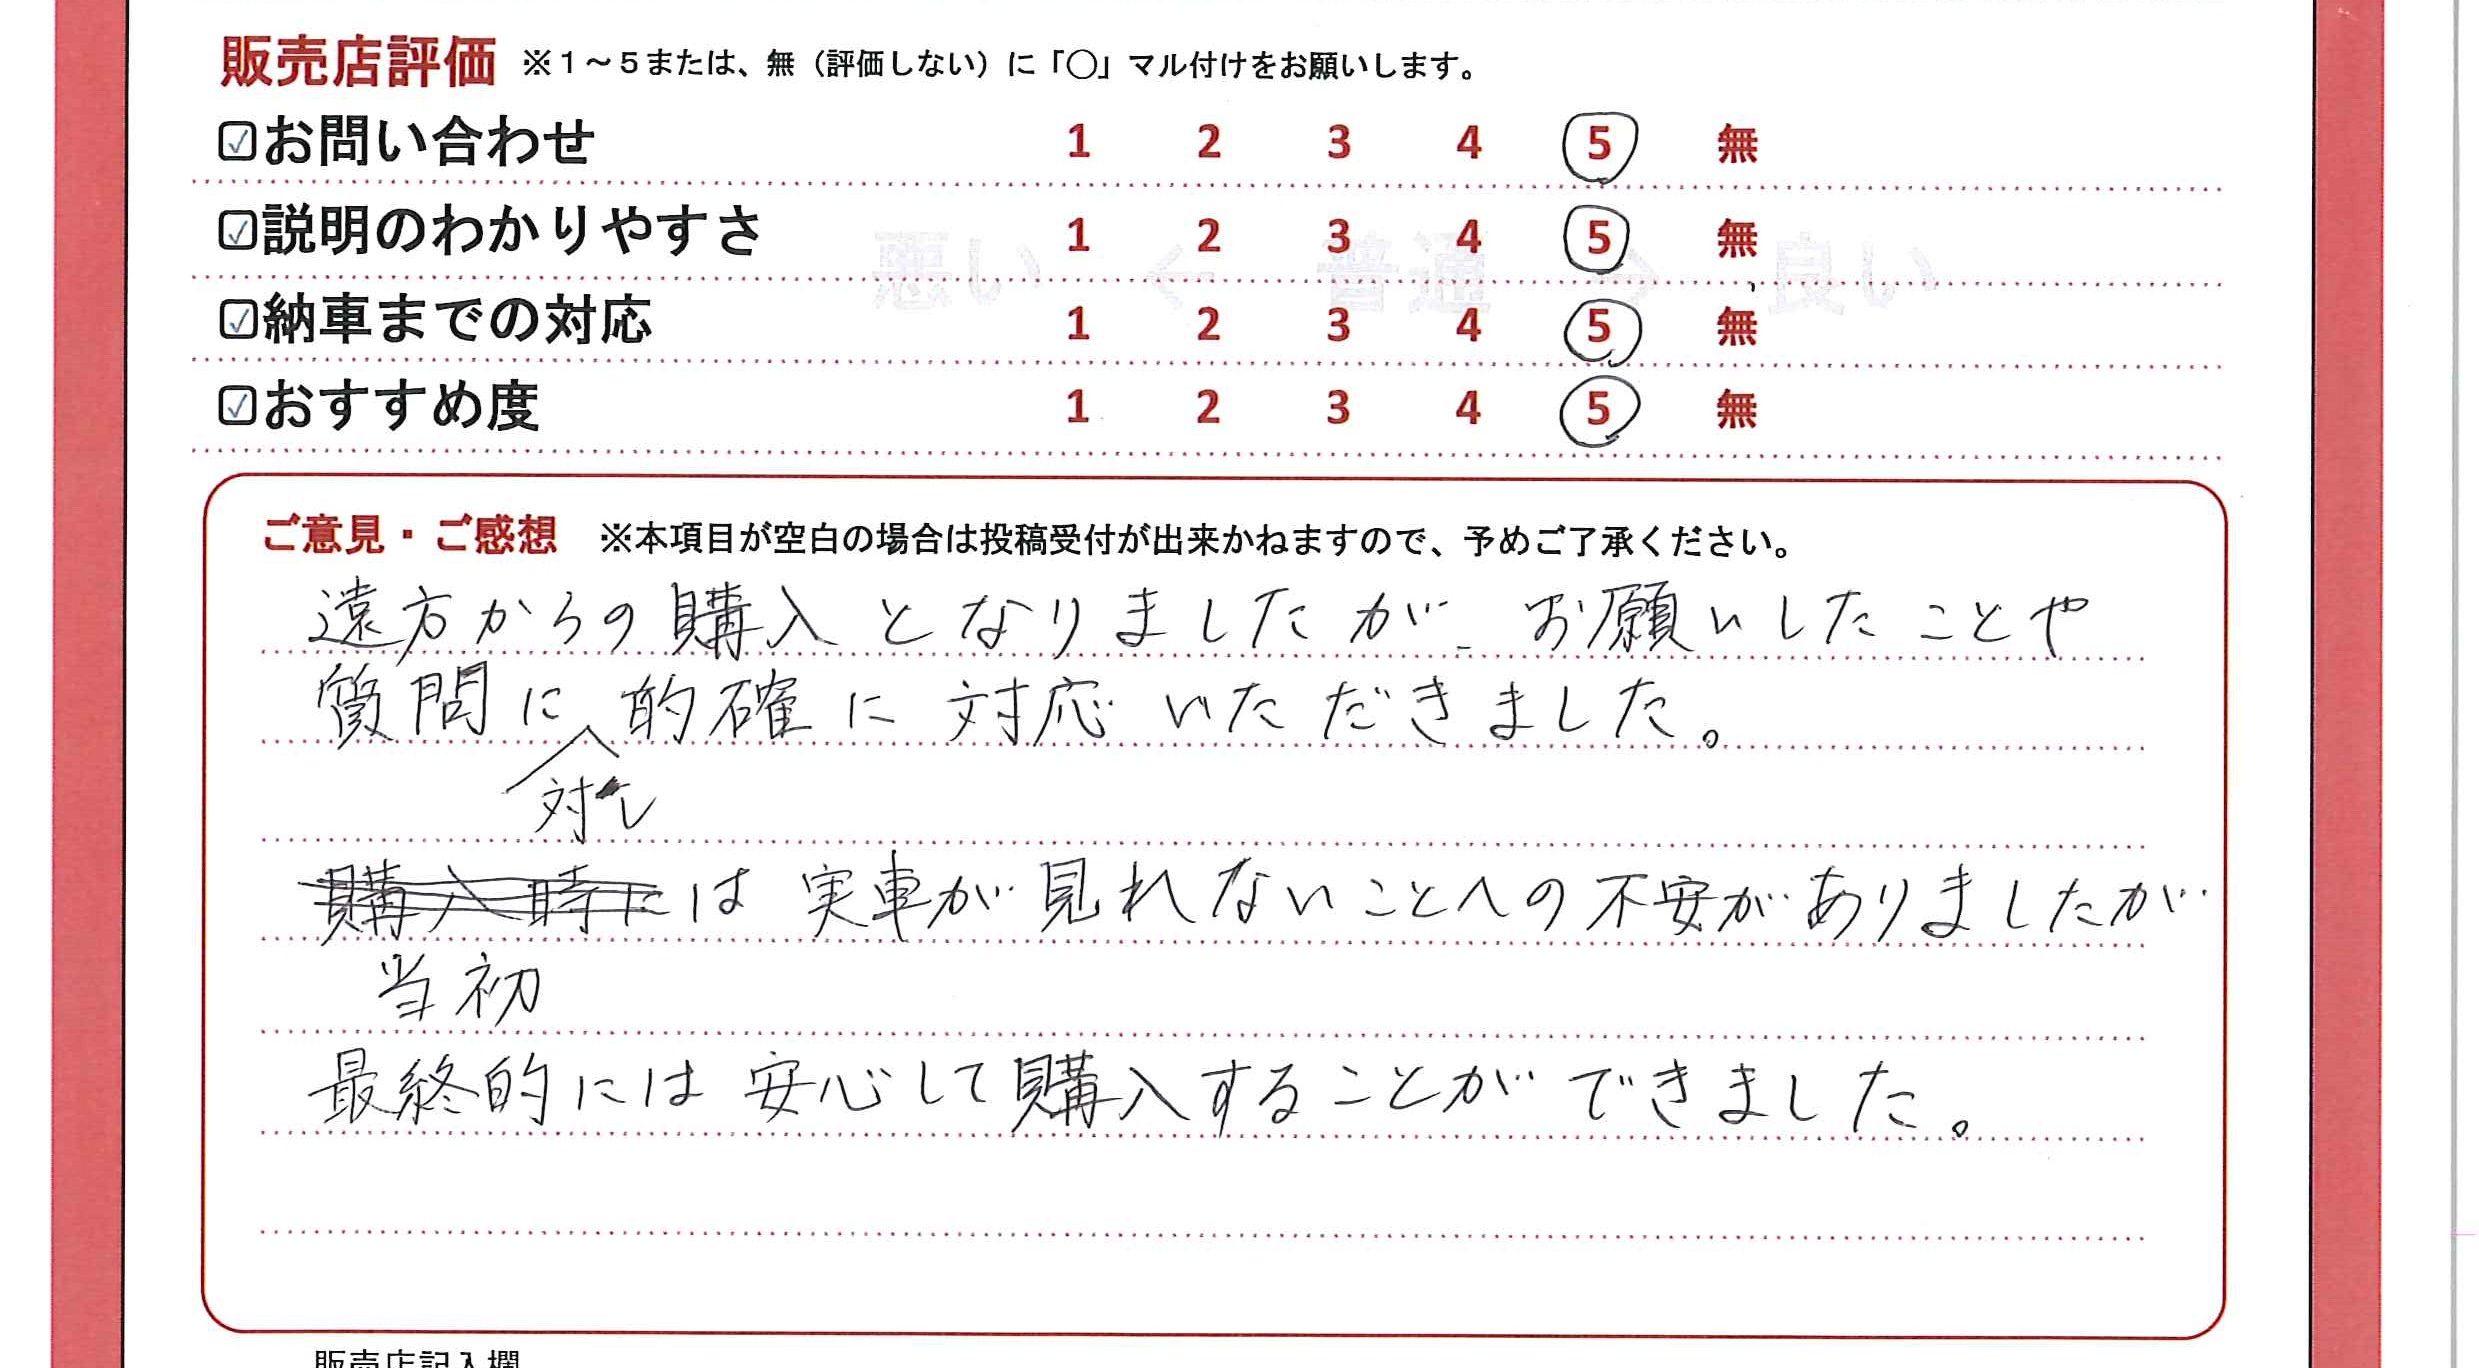 販売店評価 ※1～5または、無（評価しない）に「〇」マル付けをお願いします。
☑お問い合わせ 1 2 3 4 5 無
☑説明のわかりやすさ 1 2 3 4 5 無
悪い 普通 良い
☑納車までの対応 1 2 3 4 5 無
☑おすすめ度 1 2 3 4 5 無
ご意見・ご感想 ※本項目が空白の場合は投稿受付が出来かねますので、予めご了承ください。
遠方からの購入となりましたが、お願いしたことや
質問に的確に対応いただきました。
対し
購入時には実車が見れないことへの不安がありましたが
当初
最終的には安心して購入することができました。
販売店記入欄